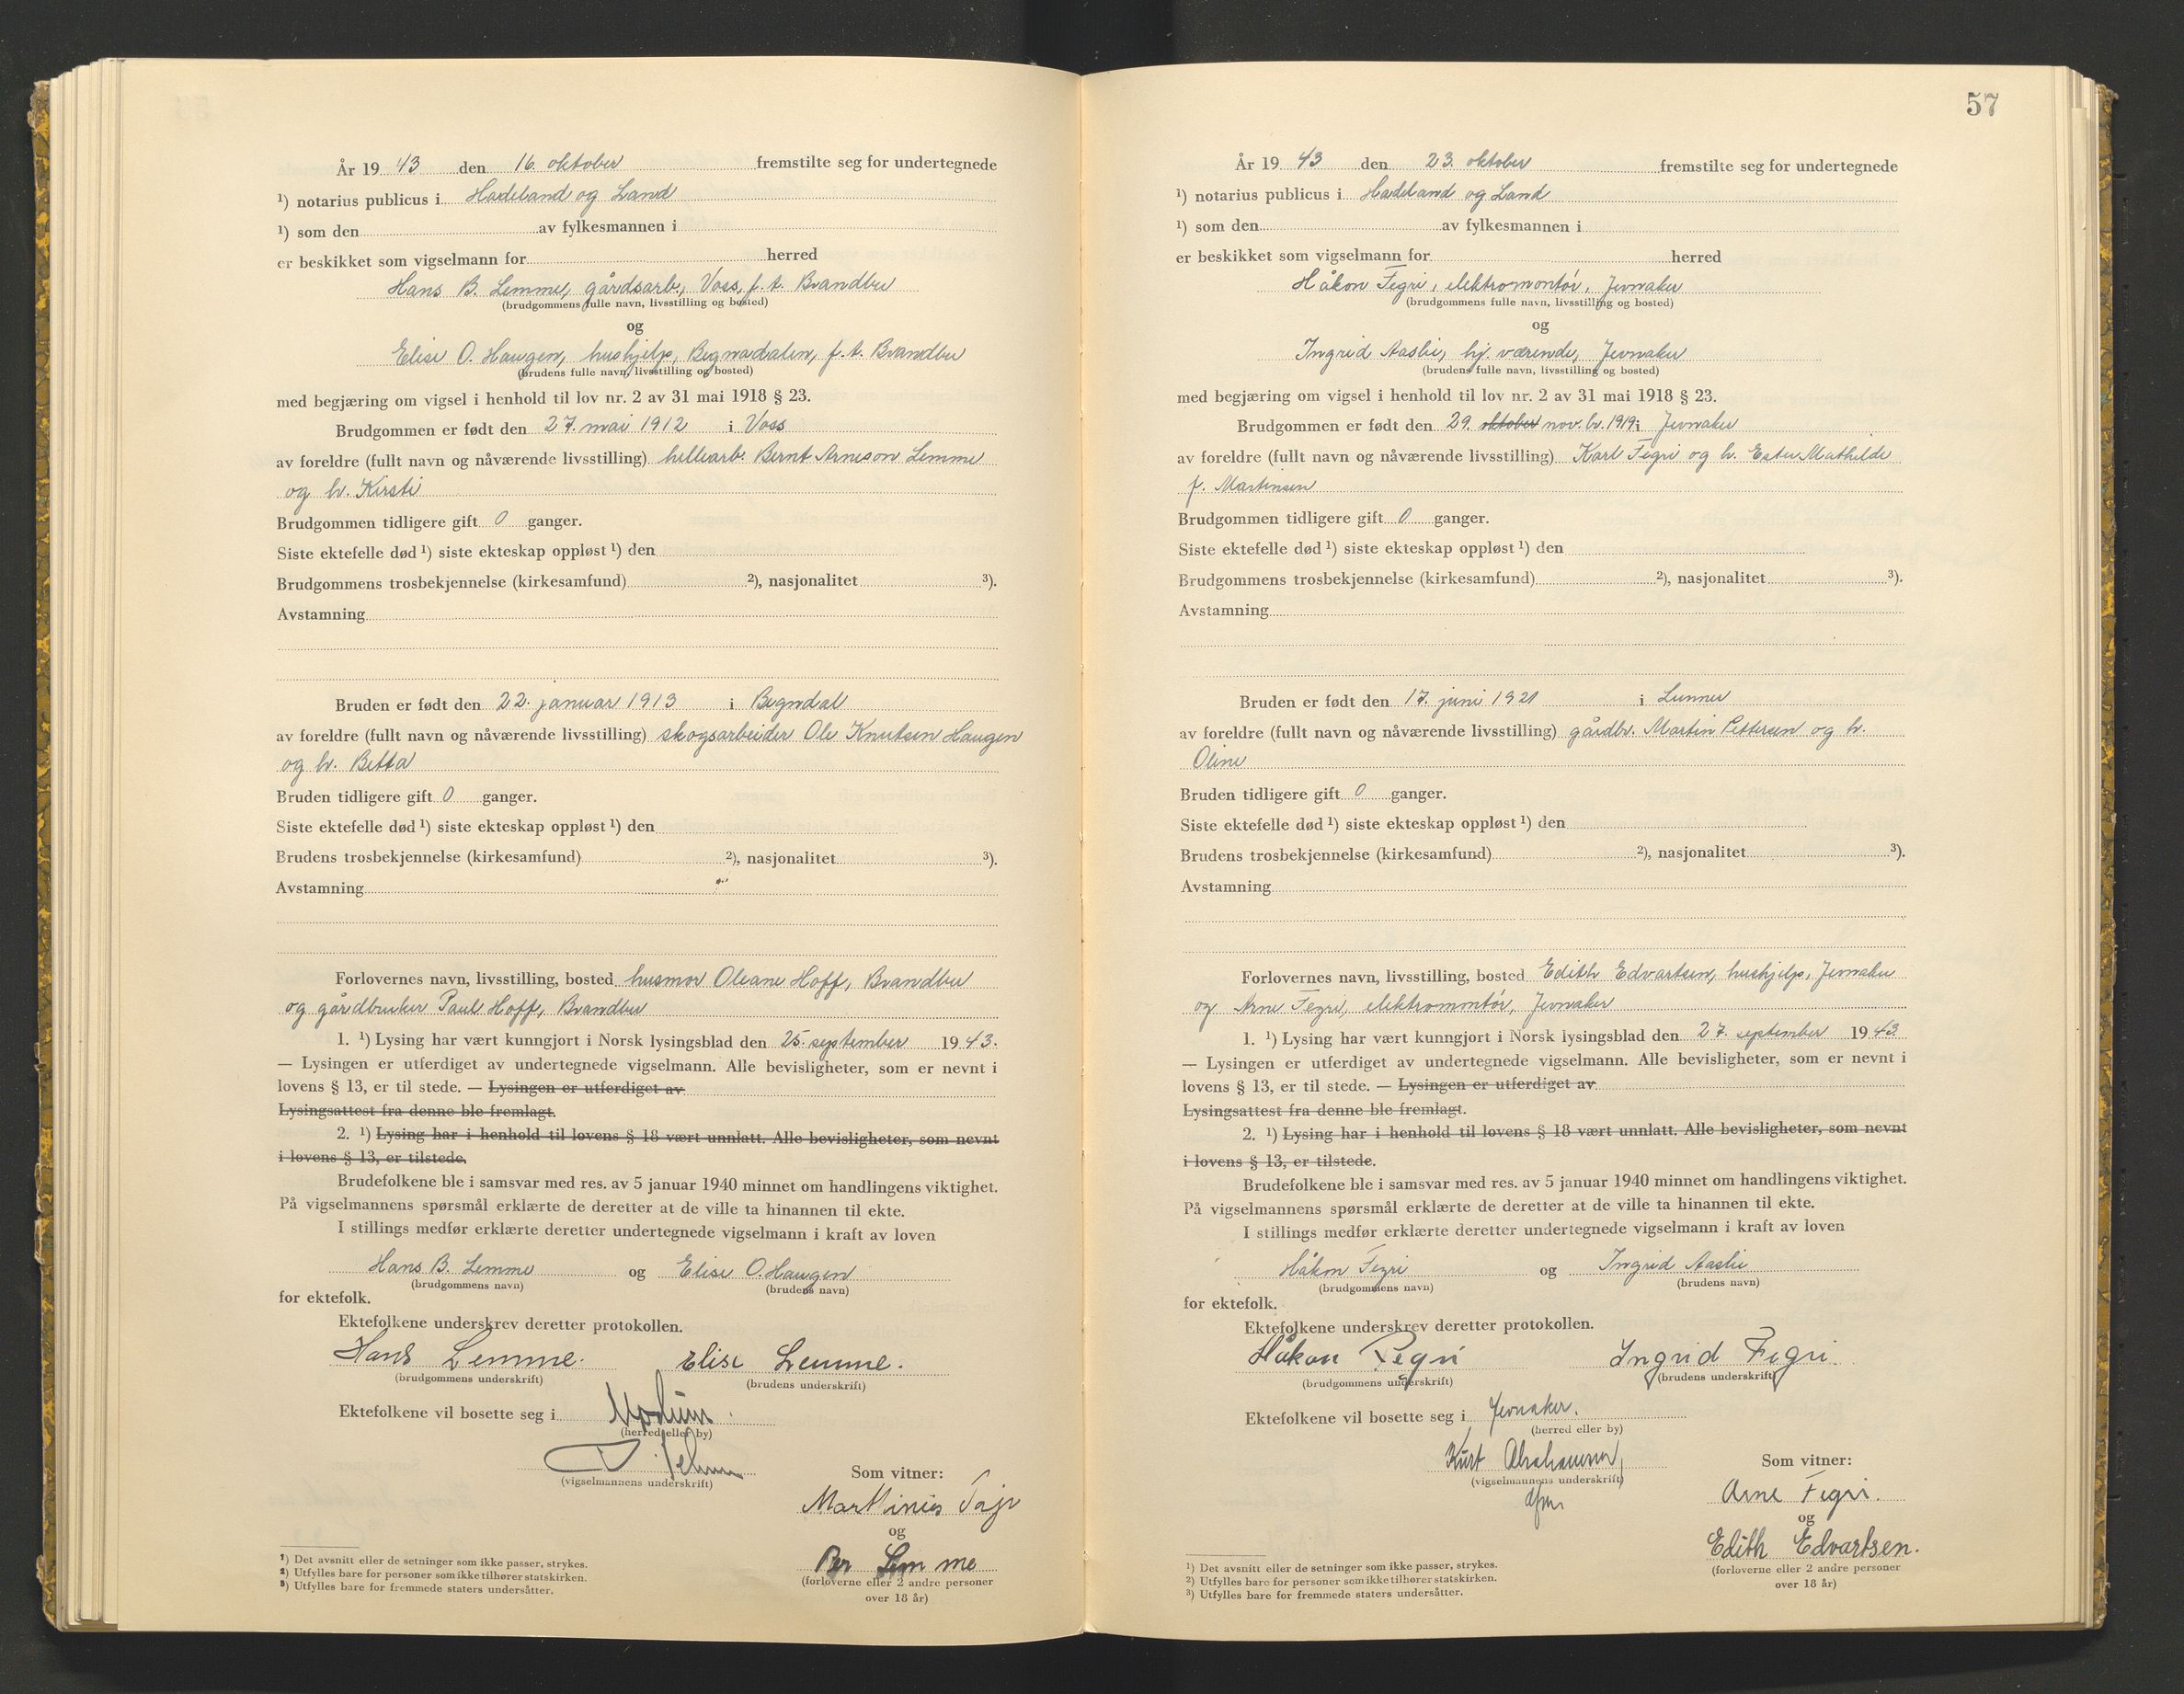 År 19 43 den 16. oktober fremstilte seg for undertegnede
¹) notarius publicus i Hadeland og Land
¹) som den av fylkesmannen i
er beskikket som vigselmann for herred
Hans B. Lemme, gårdsarb., Voss, f. t. Brandbu
(brudgommens fulle navn, livsstilling og bosted)
og
Elise O. Haugen, hushjelp, Begnadalen, f. t. Brandbu
(brudens fulle navn, livsstilling og bosted)
med begjæring om vigsel i henhold til lov nr. 2 av 31 mai 1918 § 23.
Brudgommen er født den 27. mai 1912 i Voss
av foreldre (fullt navn og nåværende livsstilling) hellearb. Bernt Arneson Lemme
og h. Kirsti
Brudgommen tidligere gift 0 ganger.
Siste ektefelle død ¹) siste ekteskap oppløst ¹) den
Brudgommens trosbekjennelse (kirkesamfund) ²), nasjonalitet ³).
Avstamning
Bruden er født den 22. januar 1913 i Begndal
av foreldre (fullt navn og nåværende livsstilling) skogsarbeider Ole Knutsen Haugen
og h. Betta
Bruden tidligere gift 0 ganger.
Siste ektefelle død ¹) siste ekteskap oppløst ¹) den
Brudens trosbekjennelse (kirkesamfund) ²), nasjonalitet ³).
Avstamning
Forlovernes navn, livsstilling, bosted husmor Oleane Hoff, Brandbu
og gårdbruker Paul Hoff, Brandbu
1. ¹) Lysing har vært kunngjort i Norsk lysingsblad den 25. september 19 43.
— Lysingen er utferdiget av undertegnede vigselmann. Alle bevisligheter, som er nevnt i
lovens § 13, er til stede. — Lysingen er utferdiget av
Lysingsattest fra denne ble fremlagt.
2. ¹) Lysing har i henhold til lovens § 18 vært unnlatt. Alle bevisligheter, som nevnt
i lovens § 13, er tilstede.
Brudefolkene ble i samsvar med res. av 5 januar 1940 minnet om handlingens viktighet.
På vigselmannens spørsmål erklærte de deretter at de ville ta hinannen til ekte.
I stillings medfør erklærte deretter undertegnede vigselmann i kraft av loven
Hans B. Lemme og Elise O. Haugen
(brudgommens navn) (brudens navn)
for ektefolk.
Ektefolkene underskrev deretter protokollen.
Hans Lemme. Elise Lemme.
(brudgommens underskrift) (brudens underskrift)
Ektefolkene vil bosette seg i Modum.
(herred eller by)
(vigselmannens underskrift) Som vitner:
Martinius
og
Per Lemme
(forloverne eller 2 andre personer
over 18 år)
¹) Det avsnitt eller de setninger som ikke passer, strykes.
²) Utfylles bare for personer som ikke tilhører statskirken.
³) Utfylles bare for fremmede staters undersåtter.
57
År 19 43 den 23. oktober fremstilte seg for undertegnede
¹) notarius publicus i Hadeland og Land
¹) som den av fylkesmannen i
er beskikket som vigselmann for herred
Håkon Fegri, elektromontør, Jevnaker
(brudgommens fulle navn, livsstilling og bosted)
og
Ingrid Aaslie, hj. værende, Jevnaker
(brudens fulle navn, livsstilling og bosted)
med begjæring om vigsel i henhold til lov nr. 2 av 31 mai 1918 § 23.
Brudgommen er født den 29. oktober nov. br. 1919 i Jevnaker
av foreldre (fullt navn og nåværende livsstilling) Karl Fegri og h. Ester Mathilde
f. Martinsen
Brudgommen tidligere gift 0 ganger.
Siste ektefelle død ¹) siste ekteskap oppløst ¹) den
Brudgommens trosbekjennelse (kirkesamfund) ²), nasjonalitet ³).
Avstamning
Bruden er født den 17. juni 1921 i Lunner
av foreldre (fullt navn og nåværende livsstilling) gårdbr. Martin Pettersen og h.
Oline
Bruden tidligere gift 0 ganger.
Siste ektefelle død ¹) siste ekteskap oppløst ¹) den
Brudens trosbekjennelse (kirkesamfund) ²), nasjonalitet ³).
Avstamning
Forlovernes navn, livsstilling, bosted Edith Edvartsen, hushjelp, Jevnaker
og Arne Fegri, elektromontør, Jevnaker
1. ¹) Lysing har vært kunngjort i Norsk lysingsblad den 27. september 19 43
— Lysingen er utferdiget av undertegnede vigselmann. Alle bevisligheter, som er nevnt i
lovens § 13, er til stede. — Lysingen er utferdiget av
Lysingsattest fra denne ble fremlagt.
2. ¹) Lysing har i henhold til lovens § 18 vært unnlatt. Alle bevisligheter, som nevnt
i lovens § 13, er tilstede.
Brudefolkene ble i samsvar med res. av 5 januar 1940 minnet om handlingens viktighet.
På vigselmannens spørsmål erklærte de deretter at de ville ta hinannen til ekte.
I stillings medfør erklærte deretter undertegnede vigselmann i kraft av loven
Håkon Fegri og Ingrid Aaslie
(brudgommens navn) (brudens navn)
for ektefolk.
Ektefolkene underskrev deretter protokollen.
Håkon Fegri Ingrid Fegri.
(brudgommens underskrift) (brudens underskrift)
Ektefolkene vil bosette seg i Jevnaker.
(herred eller by)
Kurt Abrahamsen Som vitner:
(vigselmannens underskrift)
Arne Fegri.
og
Edith Edvartsen.
(forloverne eller 2 andre personer
over 18 år)
¹) Det avsnitt eller de setninger som ikke passer, strykes.
²) Utfylles bare for personer som ikke tilhører statskirken.
³) Utfylles bare for fremmede staters undersåtter.